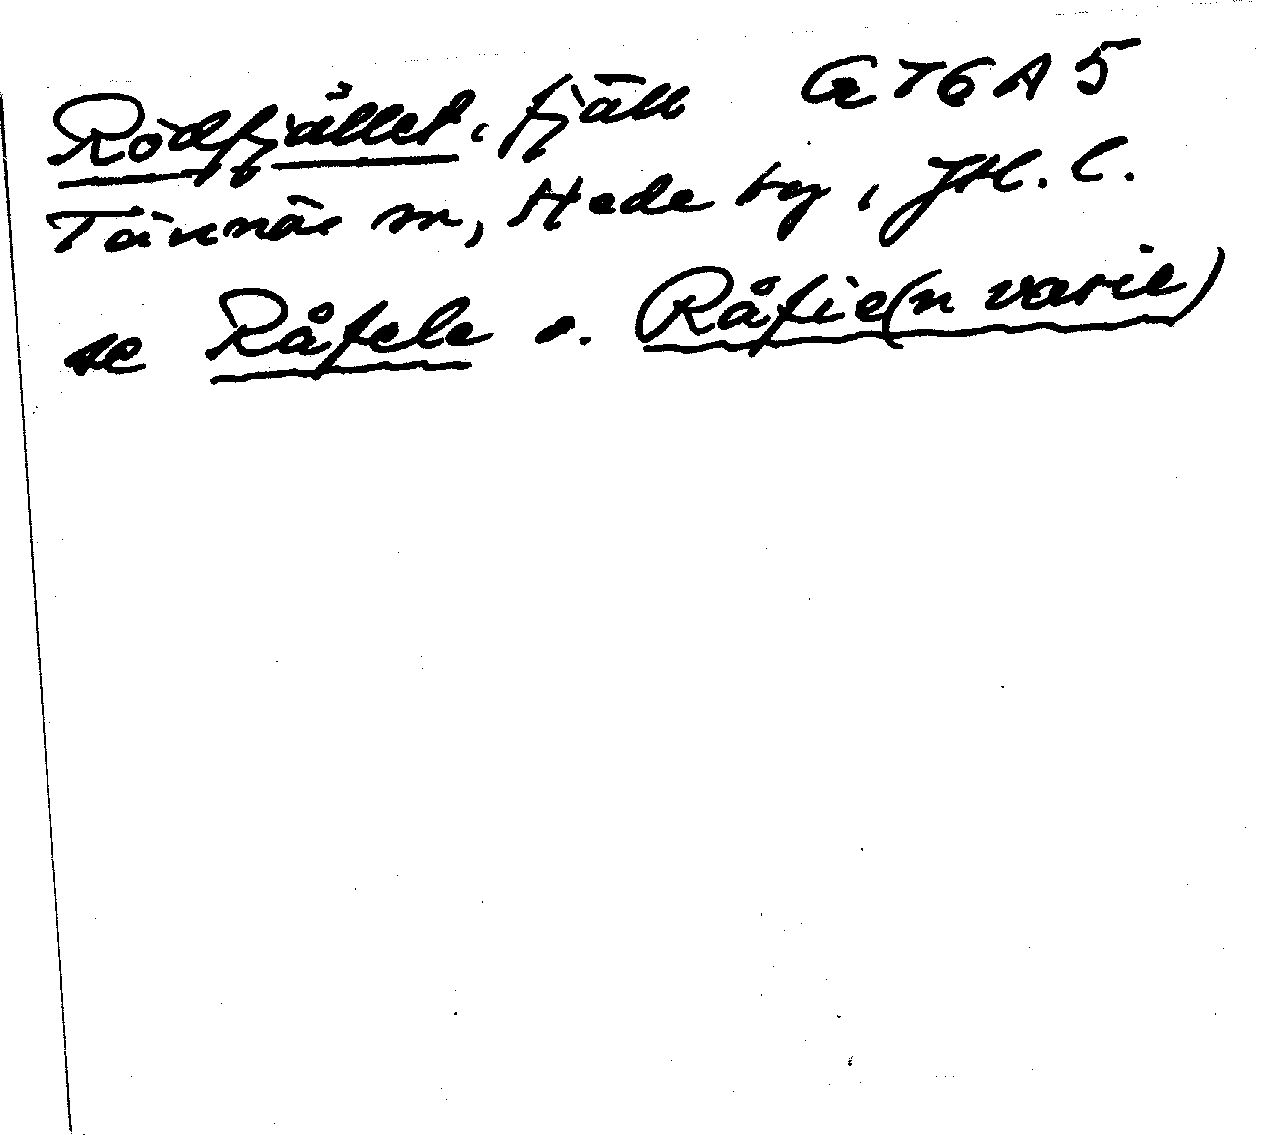 Rödfjället, fjäll G 76 A 5
Tännäs sn, Hede tg, Jtl. l.
se Råfele o. Råfie(n varie)